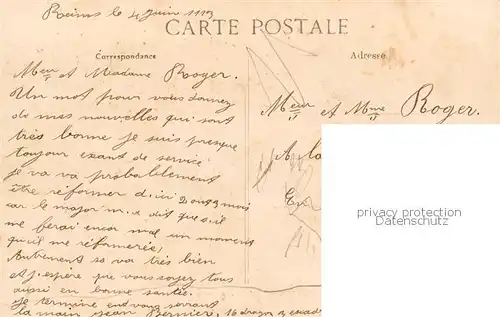 Reims le 4 Juin 1913
CARTE POSTALE
Correspondance
Adresse
Meur et Madame Roger.
Un mot pour vous donnez
de mes nouvelles qui sont
très bonne je suis presque
toujour exant de service
je va va probablement
être réformer d'ici 2 ou 3 mois
car le major m'a dit que s'il
me ferai encor mal un moment
qu'il me réformerée,
Autrement sa va très bien
et j'espère que vous soyez tous
aussi en bonne santée.
Je termine en vous serrant
la main Jean Bernier, 16 dragon 3 escad
Meur et Mme Roger.
A la
privacy protection
Datenschutz